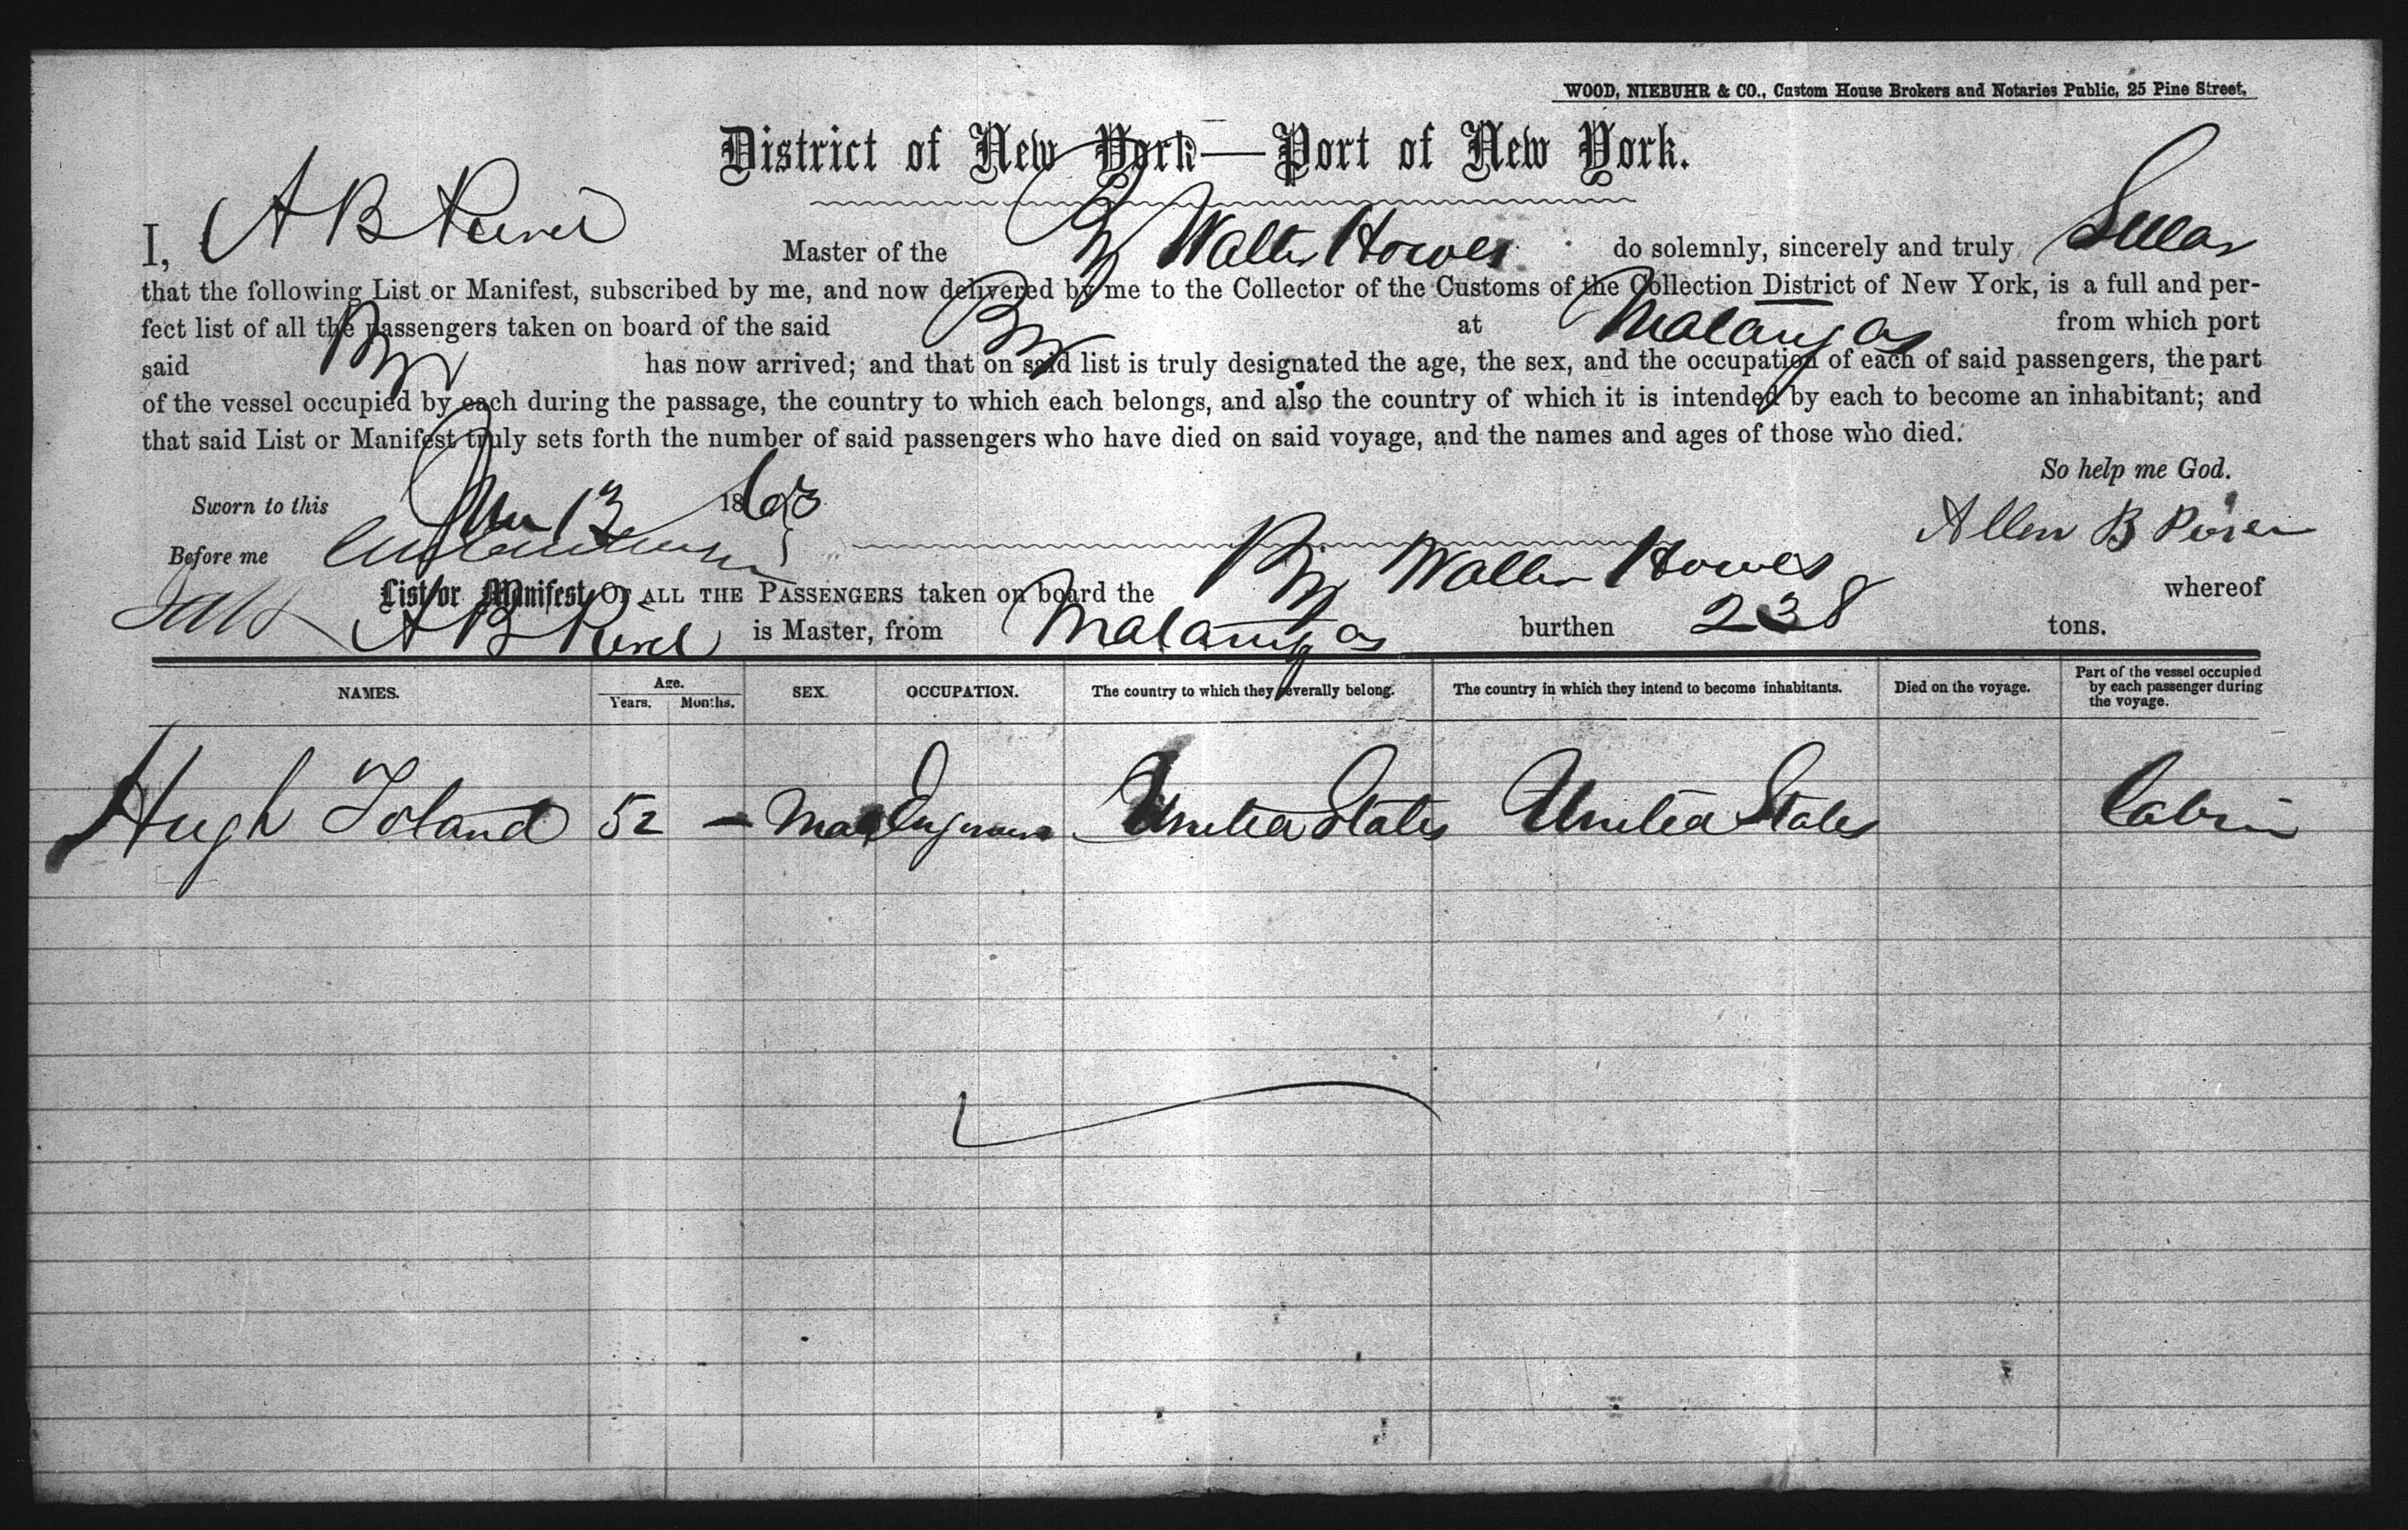 WOOD, NIEBUHR & CO., Custom House Brokers and Notaries Public, 25 Pine Street,
District of New York—Port of New York.
I, A B Master of the Walter Howes do solemnly, sincerely and truly Swear
that the following List or Manifest, subscribed by me, and now delivered by me to the Collector of the Customs of the Collection District of New York, is a full and per-
fect list of all the passengers taken on board of the said at from which port
said has now arrived; and that on said list is truly designated the age, the sex, and the occupation of each of said passengers, the part
of the vessel occupied by each during the passage, the country to which each belongs, and also the country of which it is intended by each to become an inhabitant; and
that said List or Manifest truly sets forth the number of said passengers who have died on said voyage, and the names and ages of those who died.
So help me God.
Sworn to this 13 1863
Allen B
Before me
List or Manifest OF ALL THE PASSENGERS taken on board the Walter Howes whereof
A B is Master, from burthen 238 tons.
NAMES. Age. Years. Months. SEX. OCCUPATION. The country to which they severally belong. The country in which they intend to become inhabitants. Died on the voyage. Part of the vessel occupied by each passenger during the voyage.
Hugh Toland 52 — United States United States Cabin